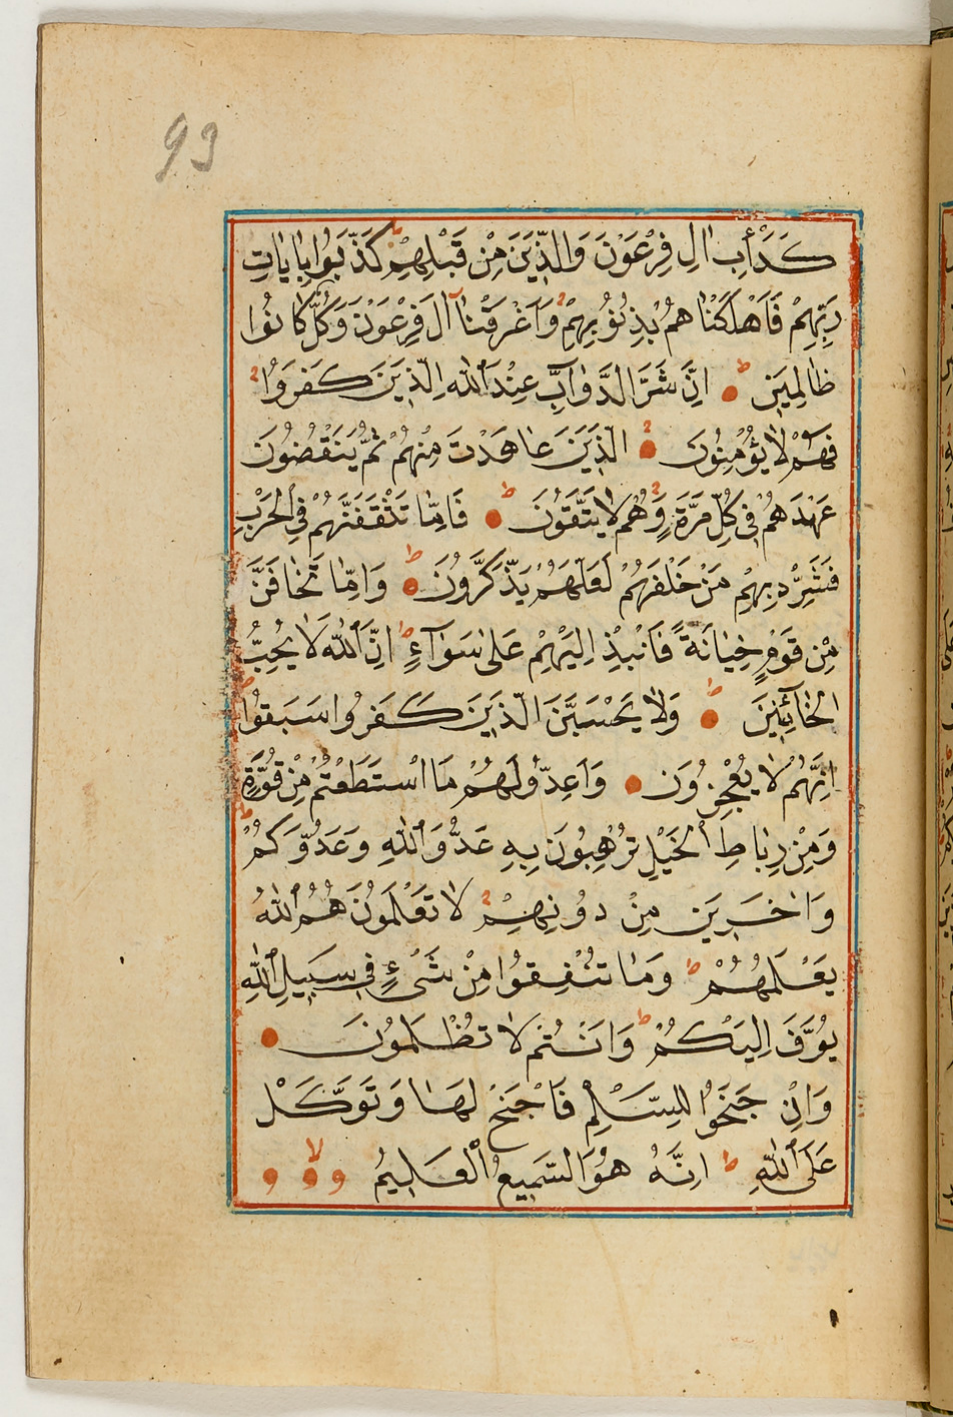 93
كَدَأْبِ اٰلِ فِرْعَوْنَ وَالَّذِيَنَ مِنْ قَبْلِهِمْ ط كَذَّبَوُا بِاٰيَاتِ
رَبِّهِمْ فَاَهْلَكْنٰا هُمْ بِذِنُوُبِهِمْ وَاَغْرَقْنٰا آلَ فِرْعَوْنَ وَكُلٌّ كٰا نُوُا
ظٰالِمِيَن ط اِنَّ شَرَّ الدَّوَآبِّ عِنْدَ اللّٰهِ الَّذِيَنَ كَفَرَوُا
فَهُمْ لٰا يُؤْمِنُوُنَ الَّذَيَنَ عٰاهَدْتَ مِنْهُمْ ثُمَّ يَنْقُضُوُنَ
عَهْدَهُمْ فِى كُلِّ مَرَّةٍ وَهُمْ لٰا يَتَّقَوُنَ ط فَاِمّٰا تَثْقَفَنَّهُمْ فِى الْحَرْبِ
فَشَرِّدْ بِهِمْ مَنْ خَلْفَهُمْ لَعَلَّهُمْ يَذَّكَّرَوُنَ ط وَاِمّٰا تَخٰافَنَّ
مِنْ قَوْمٍ خِيٰانَةً فَانْبِذْ اِلَيْهِمْ عَلىٰ سَوَآءٍ ط اِنَّ اللّٰهَ لٰا يُحِبُّ
الْخٰآئِنِيَنَ ط وَلٰا يَحْسَبَنَّ الَّذَيَنَ كَفَرُوا سَبَقوُا ط
اِنَّهُمْ لٰا يُعْجِزوُنَ وَاَعِدّوُا لَهُمْ مَا اسْتَطَعْتُمْ مِنْ قُوَّةٍ
وَمِنْ رِبٰاطِ الْخَيْلِ تُرْهِبُونَ بِهِ عَدُوَّ اللّٰهِ وَعَدُوَّكُمْ ط
وَاٰخَرِيَن مِنْ دوُنِهِمْ لٰا تَعْلَمَوُنَهُمُ اللّٰهُ
يَعْلَمُهُمْ ط وَمٰا تُنْفِقوُا مِنْ شَىْءٍ فِى سَبِيلِ اللّٰهِ
يُوَفَّ اِلَيْكُمْ ط وَاَنْتُمْ لٰا تُظْلَمَوُنَ
وَاِنْ جَنَحَوُا لِلسَّلْمِ فَاجْنَحْ لَهٰا وَتَوَكَّلْ
عَلَى اللّٰهِ ط اِنَّهُ هُوَ السَّمِيعُ الْعَلِيمُ